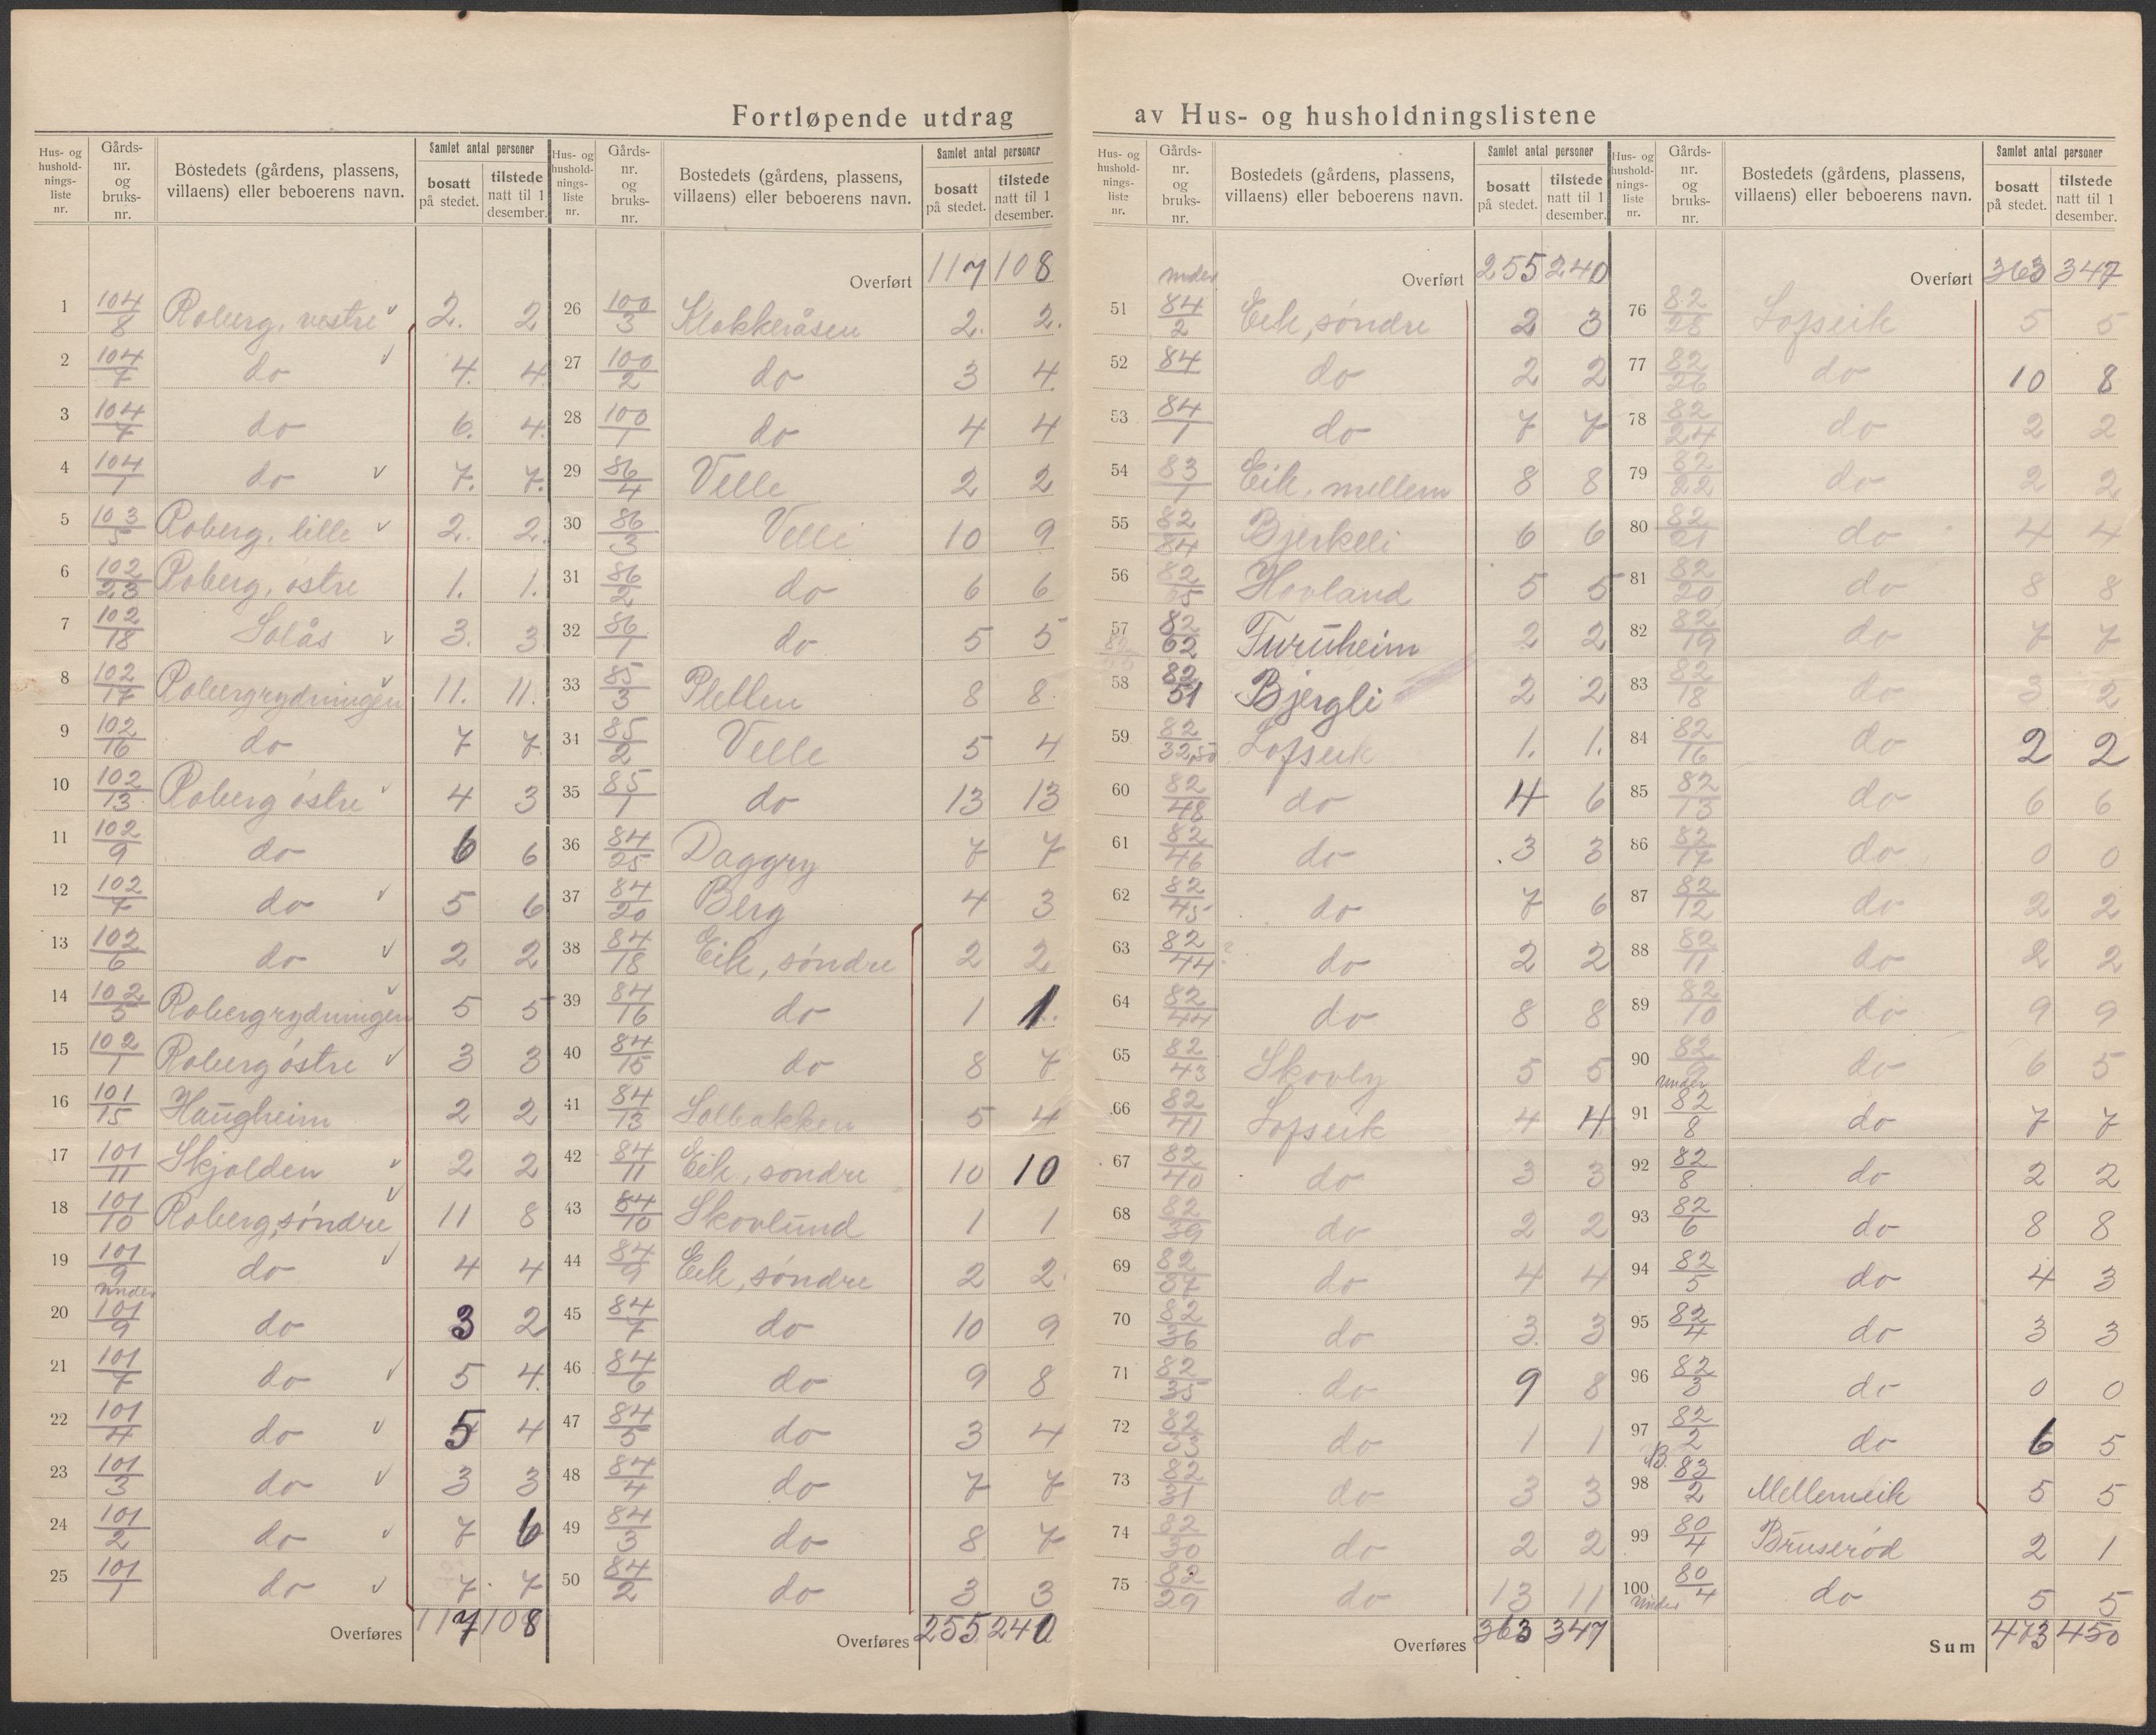 Fortløpende utdrag av Hus- og husholdningslistene
Hus- og husholdningsliste nr. | Gårdsnr. og bruksnr. | Bostedets (gårdens, plassens, villaens) eller beboerens navn. | Samlet antal personer | bosatt på stedet. | tilstede natt til 1 desember.
1 104/8 Roberg, vestre 2. 2
2 104/7 do 4. 4
3 104/7 do 6. 4.
4 104/1 do 7. 7.
5 103/5 Roberg, lille 2. 2.
6 102/23 Roberg, østre 1. 1.
7 102/18 Solås 3. 3
8 102/17 Robergrydningen 11. 11.
9 102/16 do 7 7
10 102/13 Roberg østre 4 3
11 102/9 do 6 6
12 102/7 do 5 6
13 102/6 do 2 2
14 102/5 Robergrydningen 5 5
15 102/1 Roberg østre 3 3
16 101/15 Haugheim 2 2
17 101/11 Skjolden 2 2
18 101/10 Roberg, søndre 11 8
19 101/9 do 4 4
20 under 101/9 do 3 2
21 101/7 do 5 4.
22 101/4 do 5 4
23 101/3 do 3 3
24 101/2 do 7 6
25 101/1 do 7. 7
Overføres 117 108
Hus- og husholdningsliste nr. | Gårdsnr. og bruksnr. | Bostedets (gårdens, plassens, villaens) eller beboerens navn. | Samlet antal personer | bosatt på stedet. | tilstede natt til 1 desember.
Overført 117 108
26 100/3 Klokkeråsen 2. 2.
27 100/2 do 3 4.
28 100/1 do 4 4
29 86/4 Velle 2 2
30 86/3 Velle 10 9
31 86/2 do 6 6
32 86/1 do 5 5
33 85/3 Pletten 8 8
34 85/2 Velle 5 4
35 85/1 do 13 13
36 84/25 Daggry 7 7
37 84/20 Berg 4 3
38 84/18 Eik, søndre 2 2
39 84/16 do 1 1.
40 84/15 do 8 7
41 84/13 Solbakken 5 4
42 84/11 Eik, søndre 10 10
43 84/10 Skovlund 1 1
44 84/9 Eik, søndre 2 2
45 84/7 do 10 9
46 84/6 do 9 8
47 84/5 do 3 4
48 84/4 do 7 7
49 84/3 do 8 7
50 84/2 do 3 3
Overføres 255 240
Hus- og husholdningsliste nr. | Gårdsnr. og bruksnr. | Bostedets (gårdens, plassens, villaens) eller beboerens navn. | Samlet antal personer | bosatt på stedet. | tilstede natt til 1 desember.
Overført 255 240
51 under 84/2 Eik, søndre 2 3
52 84 do 2 2
53 84/1 do 7 7
54 83/1 Eik, mellem 8 8
55 82/84 Bjerkeli 6 6
56 82/65 Hovland 5 5
57 82/62 Furuheim 2 2
58 82/51 Bjergli 2 2
59 82/32,50 Lofseik 1. 1.
60 82/48 do 4 6
61 82/46 do 3 3
62 82/45 do 7 6
63 82/44 ? do 2 2
64 82/44 do 8 8
65 82/43 Skovly 5 5
66 82/41 Lofseik 4 4
67 82/40 do 3 3
68 82/39 do 2 2
69 82/37 do 4 4
70 82/36 do 3. 3
71 82/35 do 9 8
72 82/33 do 1 1
73 82/31 do 3 3
74 82/30 do 2 2
75 82/29 do 13 11
Overføres 363 347
Hus- og husholdningsliste nr. | Gårdsnr. og bruksnr. | Bostedets (gårdens, plassens, villaens) eller beboerens navn. | Samlet antal personer | bosatt på stedet. | tilstede natt til 1 desember.
Overført 363 347
76 82/28 Lofseik 5 5
77 82/26 do 10 8
78 82/24 do 2 2
79 82/22 do 2 2
80 82/21 do 4 4
81 82/20 do 8 8
82 82/19 do 7 7
83 82/18 do 3 2
84 82/16 do 2 2
85 82/13 do 6 6
86 82/17 do 0 0
87 82/12 do 2 2
88 82/11 do 2 2
89 82/10 do 9 9
90 82/9 do 6 5
91 under 82/8 do 7 7
92 82/8 do 2 2
93 82/6 do 8 8
94 82/5 do 4 3
95 82/4 do 3 3
96 82/3 do 0 0
97 82/2 do 6 5
98 B. 83/2 Mellemeik 5 5
99 80/4 Bruserød 2 1
100 under 80/4 do 5 5
Sum 473 450